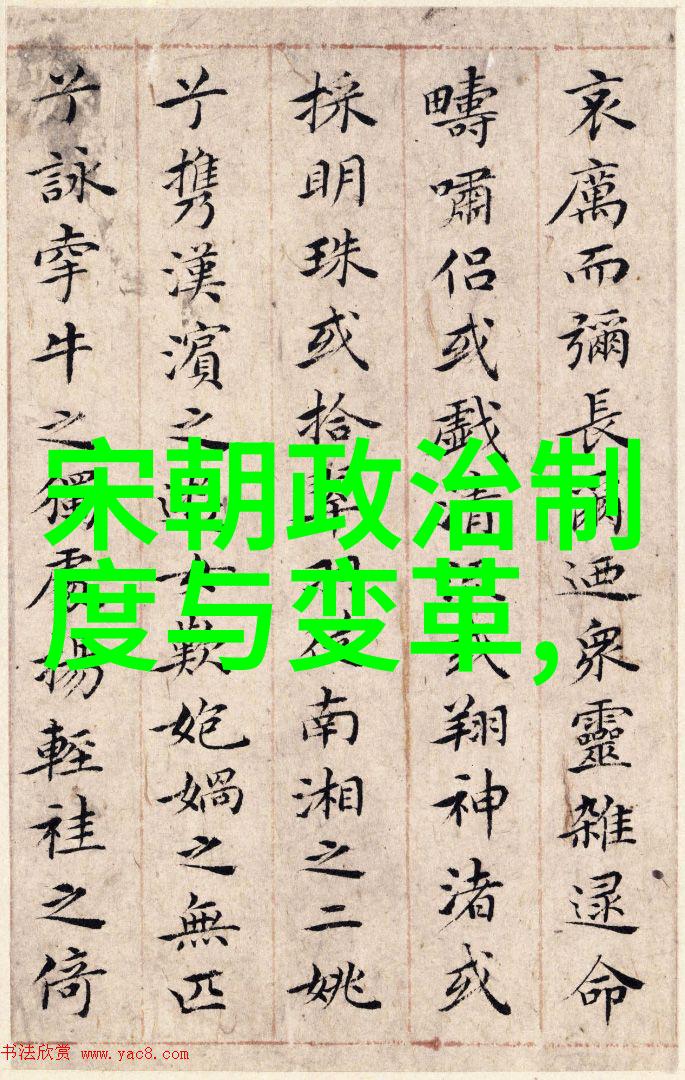 哀厲而彌長爾迺眾靈雜遝命
疇嘯侶或戲清或翔神渚或
採明珠或拾翠羽從南湘之二姚
兮攜漢濱之遊女歎媧之無匹
兮詠牽牛之獨處揚輕袿之倚
宋朝政治制
度与变革,
书法欣赏 www.yac8.com